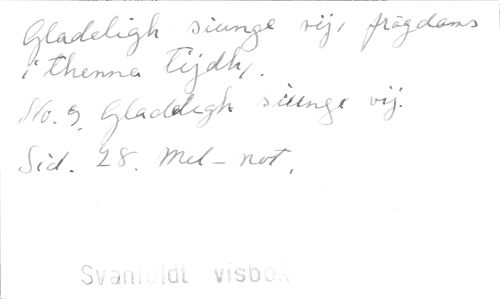 Gladeligh siunge vij, frögdams
i thenna tijdh,
No. 9. Gladeligh siunge vij.
Sid. 28. Mel-not.
Svanfeldt visbok